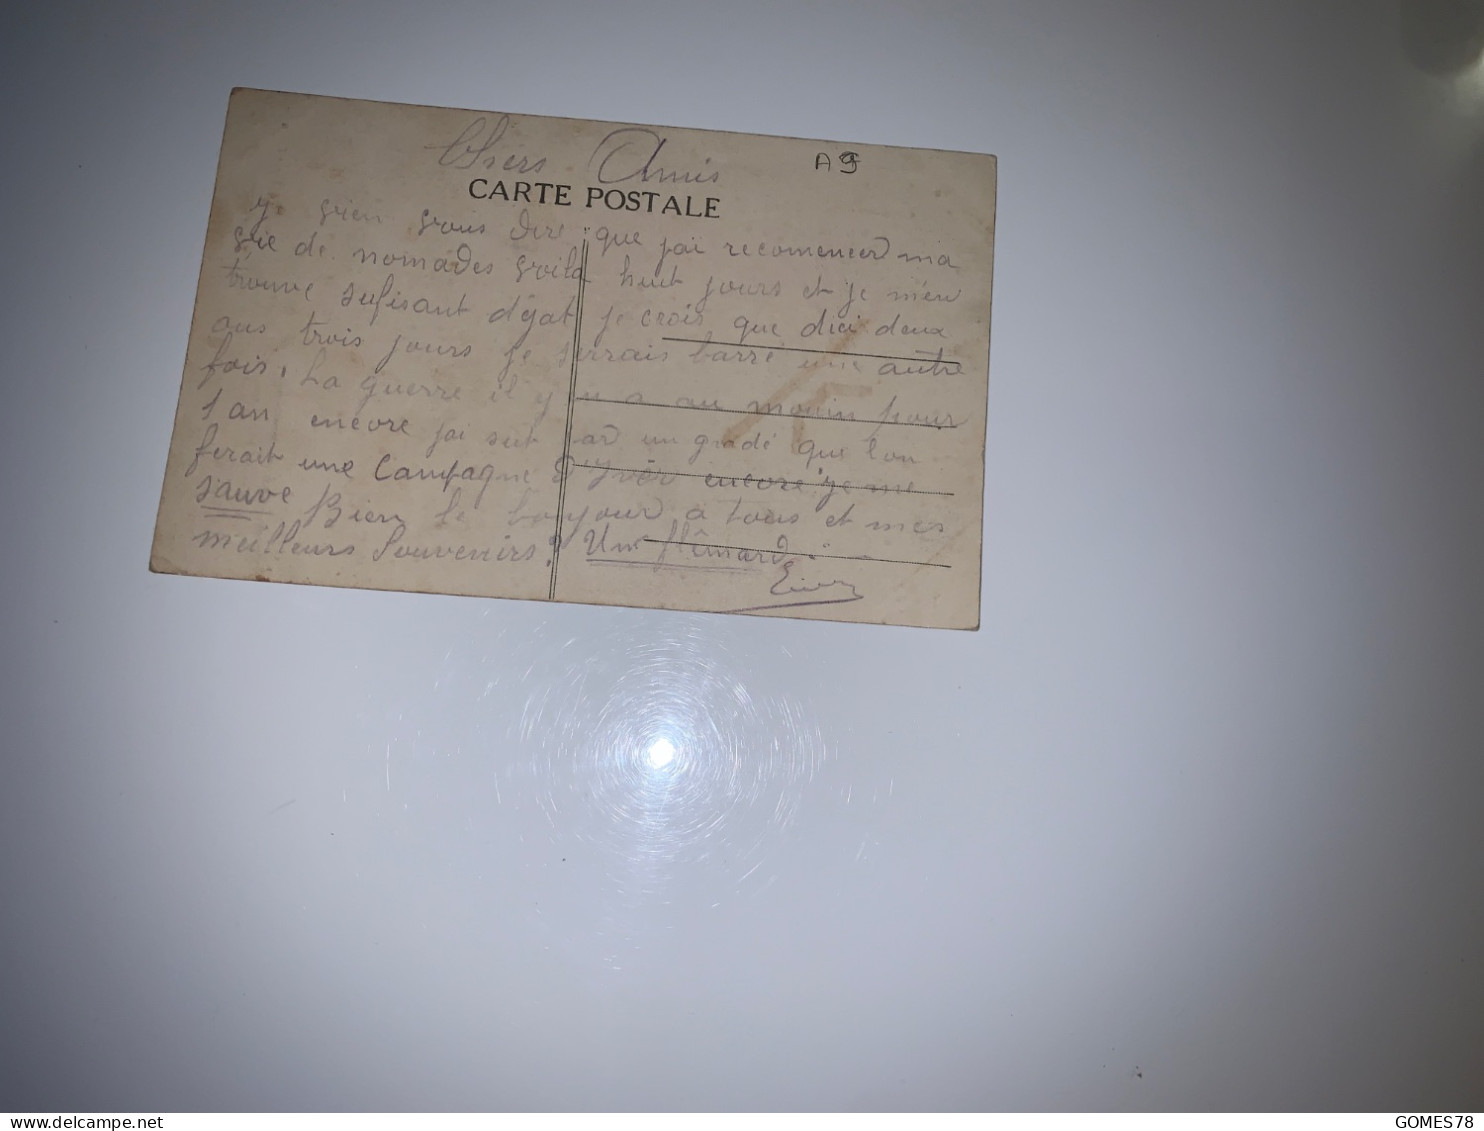 Chers Amis
A9
CARTE POSTALE
Je vien vous dire que jai recomencer ma
vie de nomades voila huit jours et je m'en
trouve sufisant dégat je crois que dici deux
aus trois jours je serrais barré une autre
fois, La guerre il y n a au mouin pour
1 an encore jai sut par un gradé que l'on
ferait une Campagne D'Iver encore je me
sauve Bien le bonjour a tous et mes
meilleurs Souvenirs? Un flémard
GOMES78